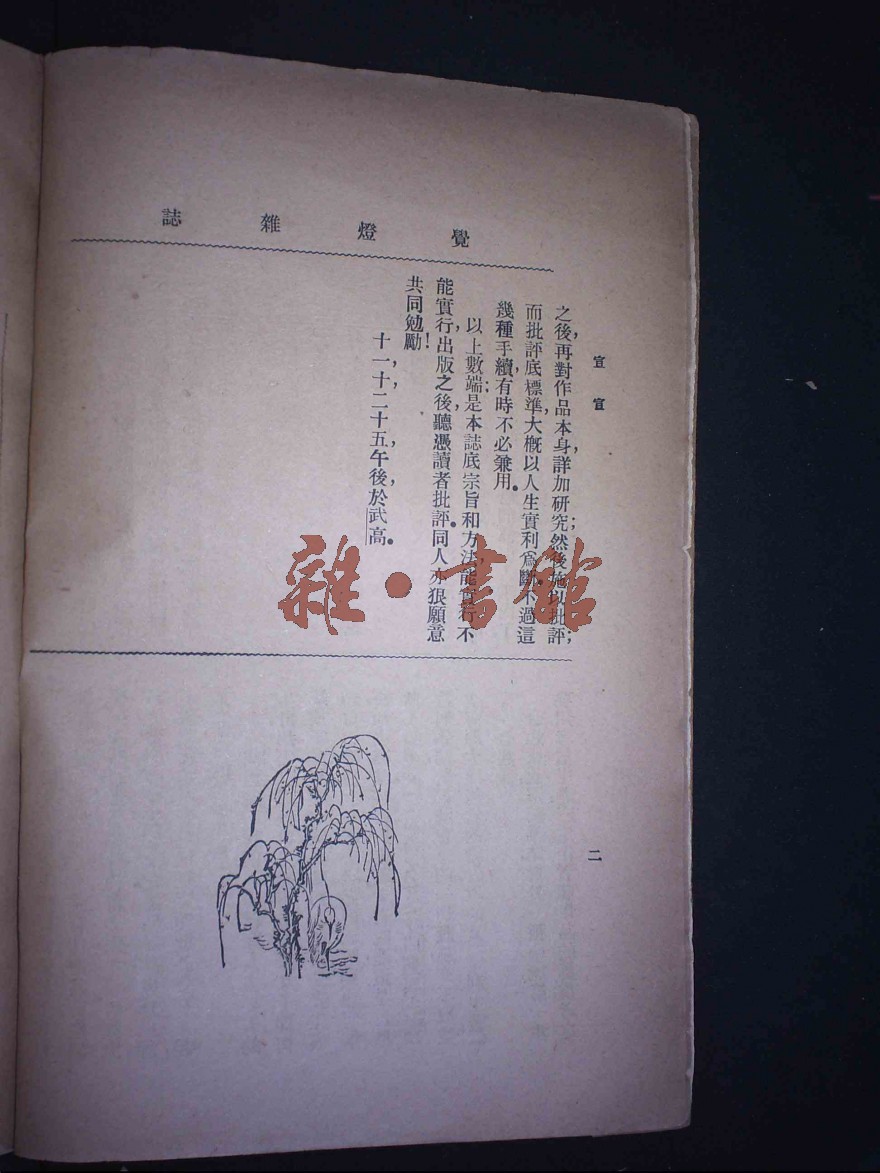 覺燈雜誌
宣宣
之後,再對作品本身,詳加研究;然後施以批評;
而批評底標準,大概以人生實利爲斷。不過這
幾種手續,有時不必兼用。
以上數端;是本誌底宗旨和方法,能實行不
能實行,出版之後,聽憑讀者批評。同人亦狠願意
共同勉勵!
十一,十二,十五,午後,於武高。
二
雜·書館